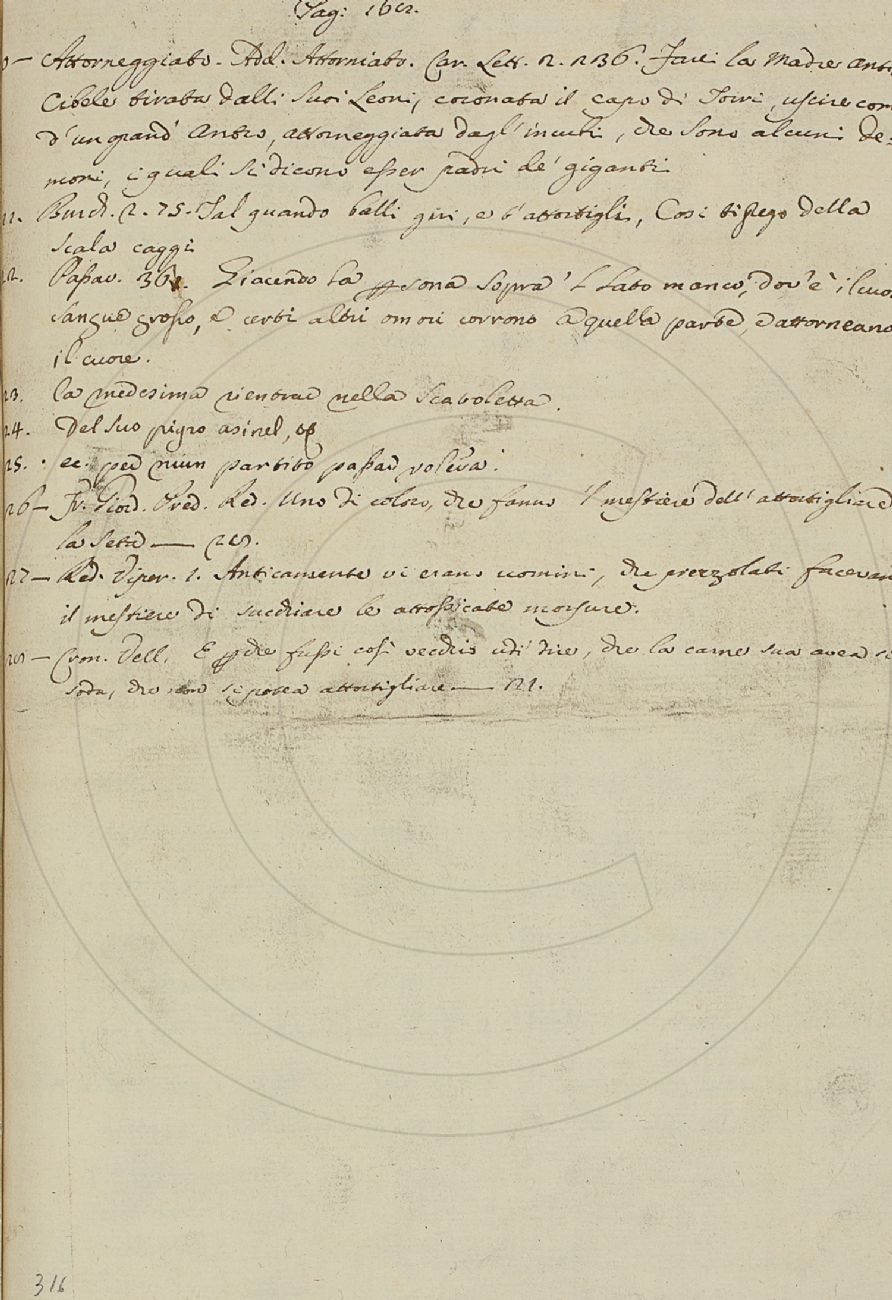 Pag: 162.
Attorneggiato. Add. Attorniato. Car. Lett. 2. 236. Feci la Madre anti
Cibele tirata dalli suoi Leoni, coronata il capo di Torri, uscire com
d'un grand' Antro, attorneggiata dagl'incubi, che sono alcuni de=
moni, i quali si dicono esser padri de' giganti
21. Burch. 2. 75. Tal quando balli giri, e t'attortigli, Così ti prego della
scala caggi
22. Passav. 362. Giacendo la psona sopra 'l lato manco, dov'è il cuo.
sangue grosso, e certi altri omori corrono a quella parte, e attorneano
il cuore.
23. la medesima rientrae nella scatoletta.
24. Del suo pigro asinel,
25. ec. ped niun partito passar voleva.
26 — Fr. Giord. Pred. Red. Uno di coloro, che fanno 'l mestiere dell'attortigliare
la seta — 28.
27 — Red. Viper. 1. Anticamente vi erano uomini, che prezzolati facevan
il mestiere di succhiare le attossicate morsure.
28 — Cron. Vell. E pche fussi così vecchio udi' dire, che la carne sua avea sì
soda, che non si potea attortigliare — 21.
316